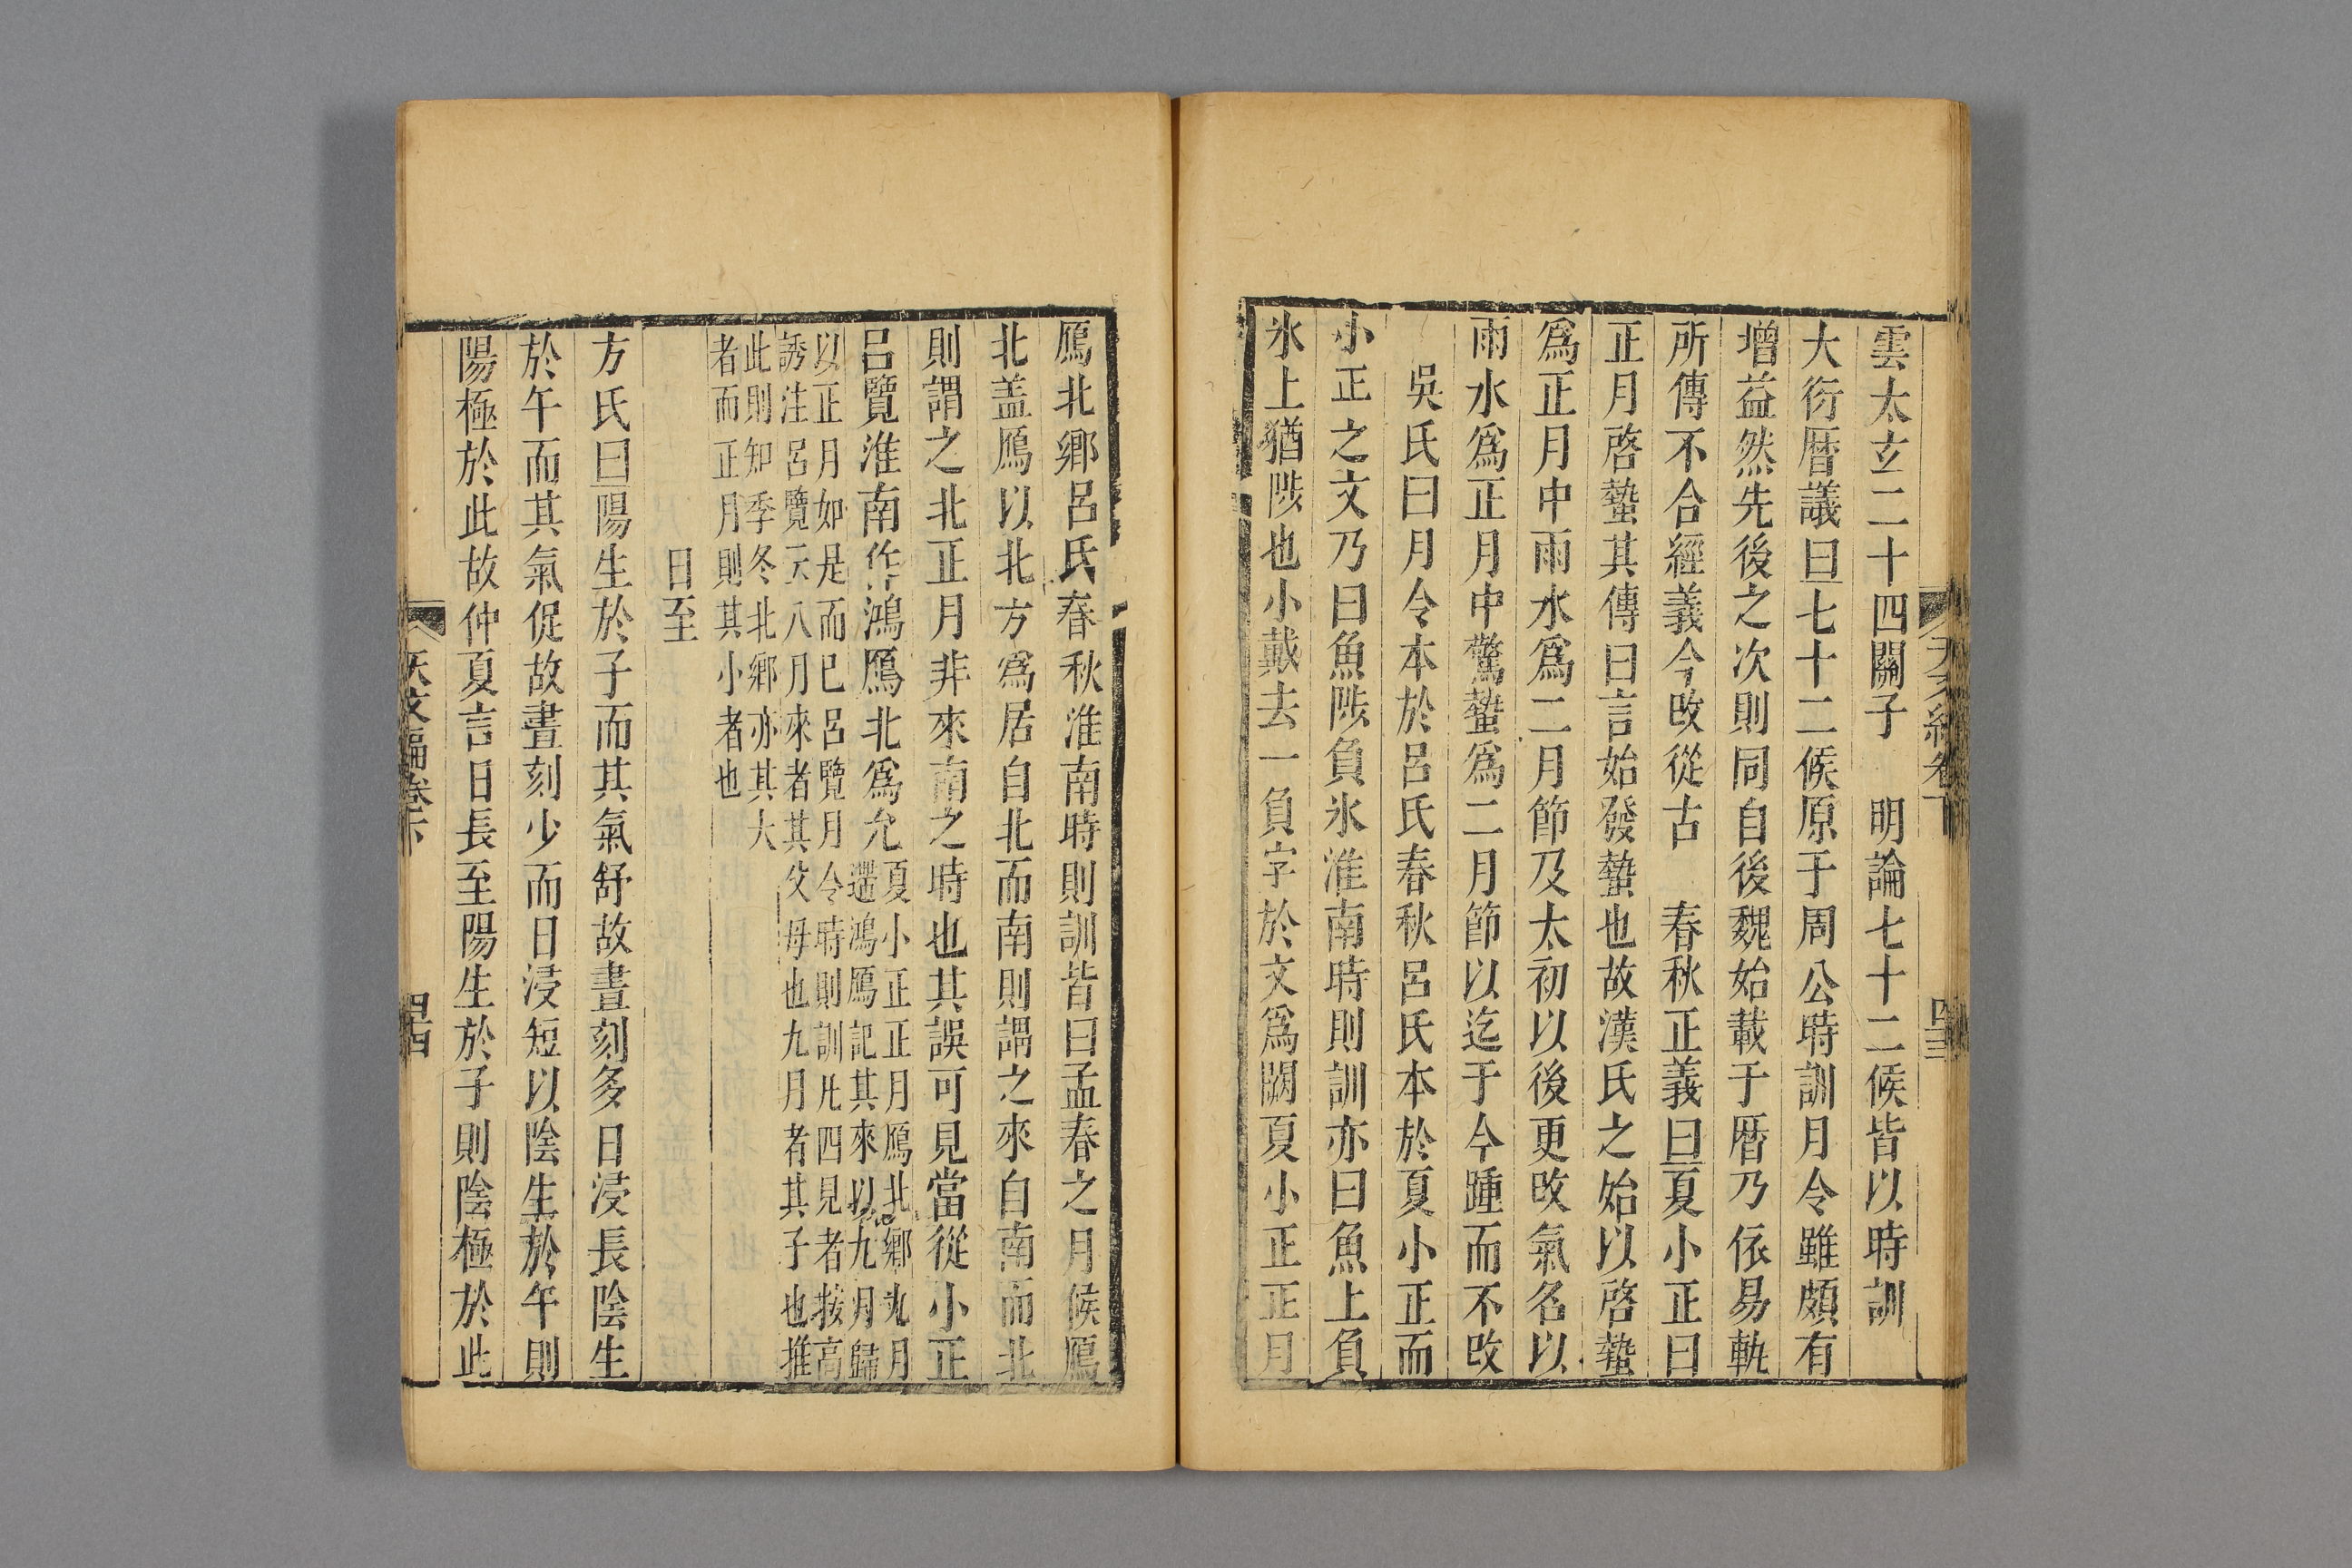 雲太玄二十四關子　明論七十二候皆以時訓
大衍曆議曰七十二候原于周公時訓月令雖頗有
增益然先後之次則同自後魏始載于曆乃依易軌
所傳不合經義今改從古　春秋正義曰夏小正曰
正月啓蟄其傳曰言始發蟄也故漢氏之始以啓蟄
爲正月中雨水爲二月節及太初以後更改氣名以
雨水爲正月中驚蟄爲二月節以迄于今踵而不改
吳氏曰月令本於呂氏春秋呂氏本於夏小正而
小正之文乃曰魚陟負氷淮南時則訓亦曰魚上負
氷上猶陟也小戴去一負字於文爲闕夏小正正月
鴈北鄉呂氏春秋淮南時則訓皆曰孟春之月候鴈
北盖鴈以北方爲居自北而南則謂之來自南而北
則謂之北正月非來南之時也其誤可見當從小正
呂覽淮南作鴻鴈北爲允
夏小正正月鴈北鄉九月
遰鴻鴈記其來以九月歸
以正月如是而已呂覽月令時則訓凡四見者按高
誘注呂覽云八月來者其父母也九月者其子也推
此則知季冬北鄉亦其大
者而正月則其小者也
日至
方氏曰陽生於子而其氣舒故晝刻多日浸長陰生
於午而其氣促故晝刻少而日浸短以陰生於午則
陽極於此故仲夏言日長至陽生於子則陰極於此
天文編卷下
四四